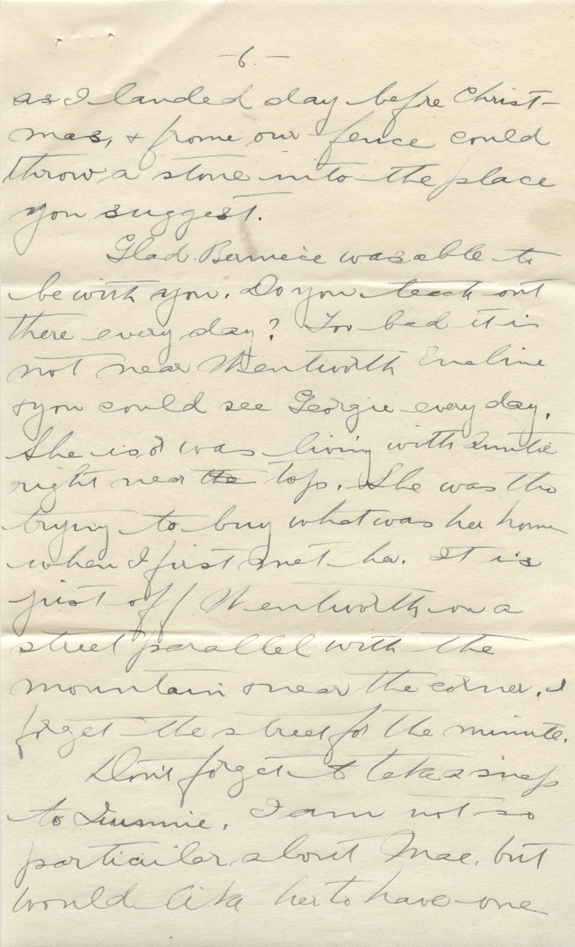 -6-
as I landed day befre Christ-
mas, & frome our fence could
throw a stone into the place
you suggest.
Glad Berniece was able to
be with you. Do you teach out
there every day? Too bad it is
not near Wentworth Incline
& you could see Georgie every day.
She is or was living with Auntie
right near the top. She was tho
trying to buy what was her home
when I first met her. It is
just off Wentworth on a
street parallel with the
mountain & near the corner. I
forget the street for the minute.
Don't forget to take a snap
to. I am not so
particular about Mae, but
would like her to have one